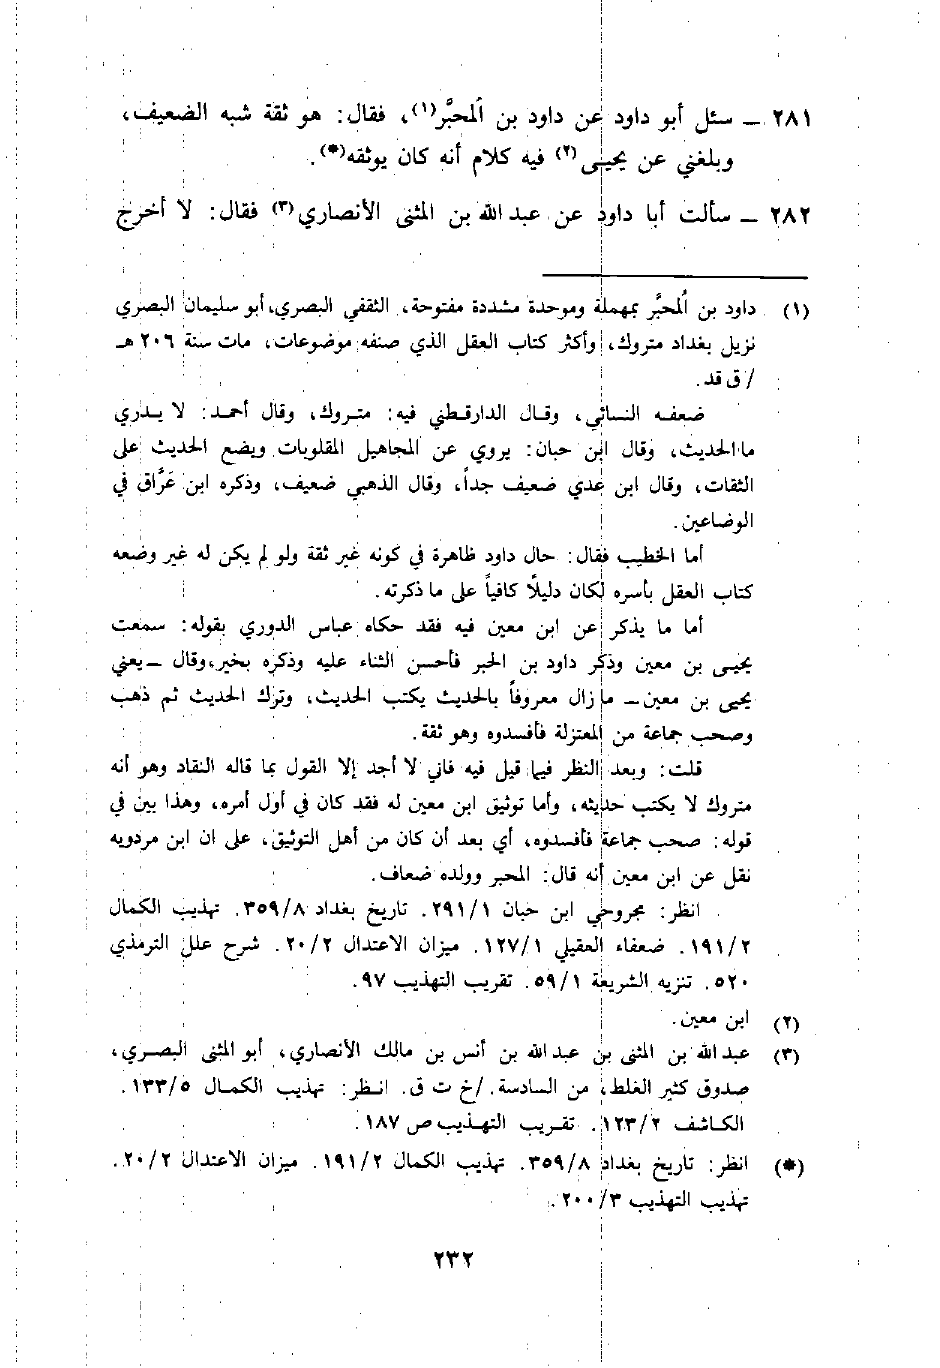 ٢٨١ ــ سئل أبو داود عن داود بن المحبَّر(١)، فقال: هو ثقة شبه الضعيف،
وبلغني عن يحيـى(٢) فيه كلام أنه كان يوثقه(*).
٢٨٢ ــ سألت أبا داود عن عبد الله بن المثنى الأنصاري(٣) فقال: لا أخرج
(١) داود بن المُحبَّر بمهملة وموحدة مشددة مفتوحة، الثقفي البصري، أبو سليمان البصري
نزيل بغداد متروك، وأكثر كتاب العقل الذي صنفه موضوعات، مات سنة ٢٠٦ هـ
/ ق قد.
ضعفه النسائي، وقال الدارقطني فيه: متروك، وقال أحمد: لا يدري
ما الحديث، وقال ابن حبان: يروي عن المجاهيل المقلوبات ويضع الحديث على
الثقات، وقال ابن عدي ضعيف جداً، وقال الذهبي ضعيف، وذكره ابن عَرَّاق في
الوضاعين.
أما الخطيب فقال: حال داود ظاهرة في كونه غير ثقة ولو لم يكن له غير وضعه
كتاب العقل بأسره لكان دليلًا كافياً على ما ذكرته.
أما ما يذكر عن ابن معين فيه فقد حكاه عباس الدوري بقوله: سمعت
يحيـى بن معين وذكر داود بن الخبر فأحسن الثناء عليه وذكره بخير، وقال ــ يعني
يحيى بن معين ــ ما زال معروفاً بالحديث يكتب الحديث، وترك الحديث ثم ذهب
وصحب جماعة من المعتزلة فأفسدوه وهو ثقة.
قلت: وبعد النظر فيما قيل فيه فاني لا أجد إلا القول بما قاله النقاد وهو أنه
متروك لا يكتب حديثه، وأما توثيق ابن معين له فقد كان في أول أمره، وهذا بين في
قوله: صحب جماعة فأفسدوه، أي بعد أن كان من أهل التوثيق، على ان ابن مردويه
نقل عن ابن معين أنه قال: المحبر وولده ضعاف.
انظر: مجروحي ابن حبان ٢٩١/١. تاريخ بغداد ٣٥٩/٨. تهذيب الكمال
١٩١/٢. ضعفاء العقيلي ١٢٧/١. ميزان الاعتدال ٢٠/٢. شرح علل الترمذي
٥٢٠. تنزيه الشريعة ٥٩/١. تقريب التهذيب ٩٧.
(٢) ابن معين.
(٣) عبد الله بن المثنى بن عبد الله بن أنس بن مالك الأنصاري، أبو المثنى البصري،
صدوق كثير الغلط، من السادسة. /خ ت ق. انظر: تهذيب الكمال ١٣٣/٥.
الكاشف ١٢٣/٢. تقريب التهذيب ص ١٨٧.
(*) انظر: تاريخ بغداد ٣٥٩/٨. تهذيب الكمال ١٩١/٢. ميزان الاعتدال ٢٠/٢.
تهذيب التهذيب ٢٠٠/٣.
٢٣٢